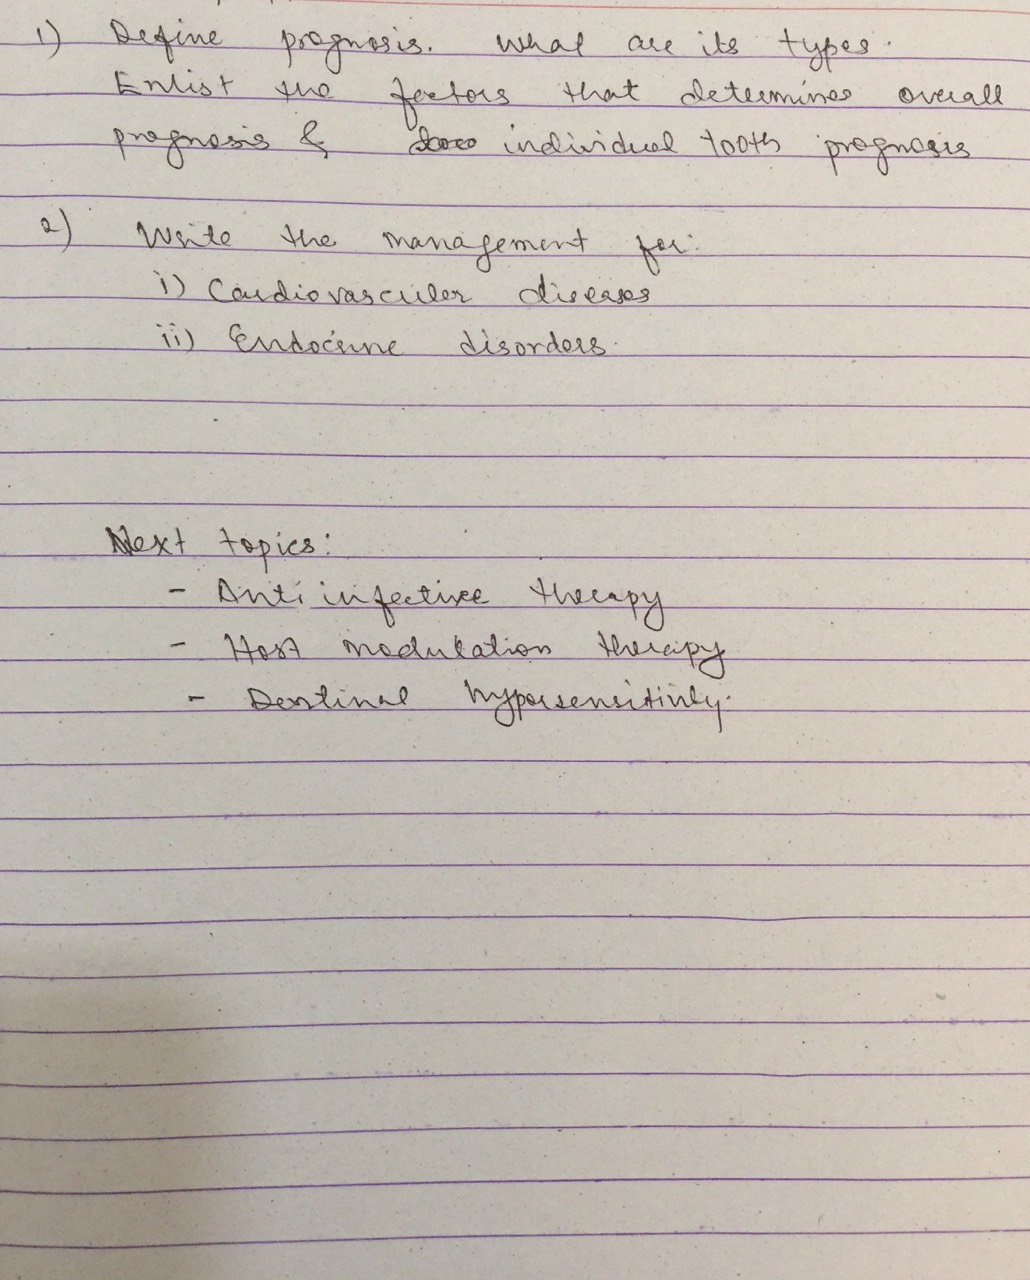 1) Define prognosis. What are its types.
Enlist the factors that determines overall
prognosis & individual tooth prognosis
2) Write the management for:
i) Cardiovascular diseases
ii) Endocrine disorders.
Next topics:
- Anti infective therapy
- Host modulation therapy
- Dentinal hypersensitivity.